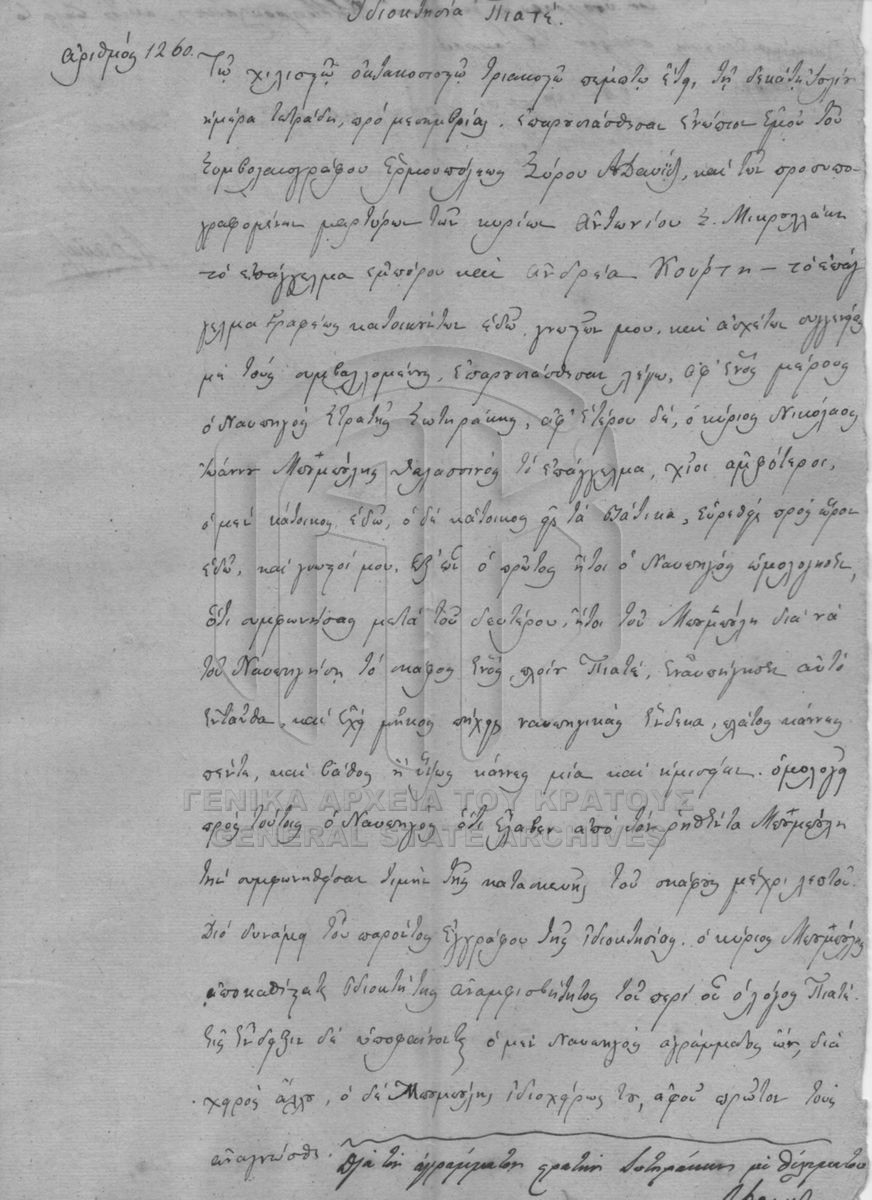 Ἰδιοκτησία Πιατέ.
ἀριθμός 1260.
Τῷ χιλιοστῷ ὀκτακοσιοστῷ τριακοστῷ πέμπτῳ ἔτει, τῇ δεκάτῃ
ἡμέρᾳ τετράδη, πρό μεσημβρίας. ἐπαρρησιάσθησαν ἐνώπιον ἐμοῦ τοῦ
Συμβολαιογράφου Ἑρμουπόλεως Σύρου ΑΔαυίδ, καί τῶν προσυπο-
γραφομένων μαρτύρων τῶν κυρίων Ἀντωνίου Σ.
τό ἐπάγγελμα ἐμπόρου καί Ἀνδρέα Κούρτη – τό ἐπάγ
γελμα γραφέως κατοικούντων ἐδῶ, γνωστῶν μου, καί ἀσχέτων συγγενείας
μέ τούς συμβαλλομένους, ἐπαρρησιάσθησαν λέγω, ἀφ' ἑνός μέρους
ὁ Ναυπηγός Στρατής Σωτηράκης, ἀφ' ἑτέρου δέ, ὁ κύριος Νικόλαος
Ἰωάννου Μπουμπούλης θαλασσινός τό ἐπάγγελμα, χῖοι ἀμφότεροι,
ὁ μέν κάτοικος ἐδῶ, ὁ δέ κάτοικος εἰς τά Βάτικα, εὑρεθείς πρός ὥραν
ἐδῶ, καί γνωστοί μου. ἐξ ὧν ὁ πρῶτος ἤτοι ὁ Ναυπηγός ὡμολόγησε,
ὅτι συμφωνήσας μετά τοῦ δευτέρου, ἤτοι τοῦ Μπουμπούλη διά νά
τοῦ Ναυπηγήσῃ τό σκάφος ἑνός πλοίου Πιατέ, ἐναυπήγησε αὐτό
ἐνταῦθα, καί ἔχει μῆκος πήχεις ναυπηγικάς ἕνδεκα, πλάτος κάννας
πέντε, καί βάθος ἤ ὕψος κάννες μία καί ἡμισείαν. ὁμολογεῖ
πρός τούτοις ὁ Ναυπηγός ὅτι ἔλαβεν ἀπό τόν ῥηθέντα Μπουμπούλη
τήν συμφωνηθεῖσαν τιμήν τῆς κατασκευῆς τοῦ σκάφους μέχρι λεπτοῦ.
Διό δυνάμει τοῦ παρόντος ἐγγράφου τῆς ἰδιοκτησίας. ὁ κύριος Μπουμπούλης
ἀποκαθίσταται ἰδιοκτήτης ἀναμφισβήτητος τοῦ περί οὗ ὁ λόγος Πιατέ.
Εἰς ἔνδειξιν δέ ὑποφαίνονται ὁ μέν Ναυπηγός ἀγράμματος ὤν, διά
χειρός ἄλλου, ὁ δέ Μπουμπούλης ἰδιοχείρως του, ἀφοῦ πρῶτον τούς
ἀνεγνώσθη.
Διά τόν ἀγράμματον στρατήν Σωτηράκην μέ θέλημα του
ΓΕΝΙΚΑ ΑΡΧΕΙΑ ΤΟΥ ΚΡΑΤΟΥΣ
GENERAL STATE ARCHIVES